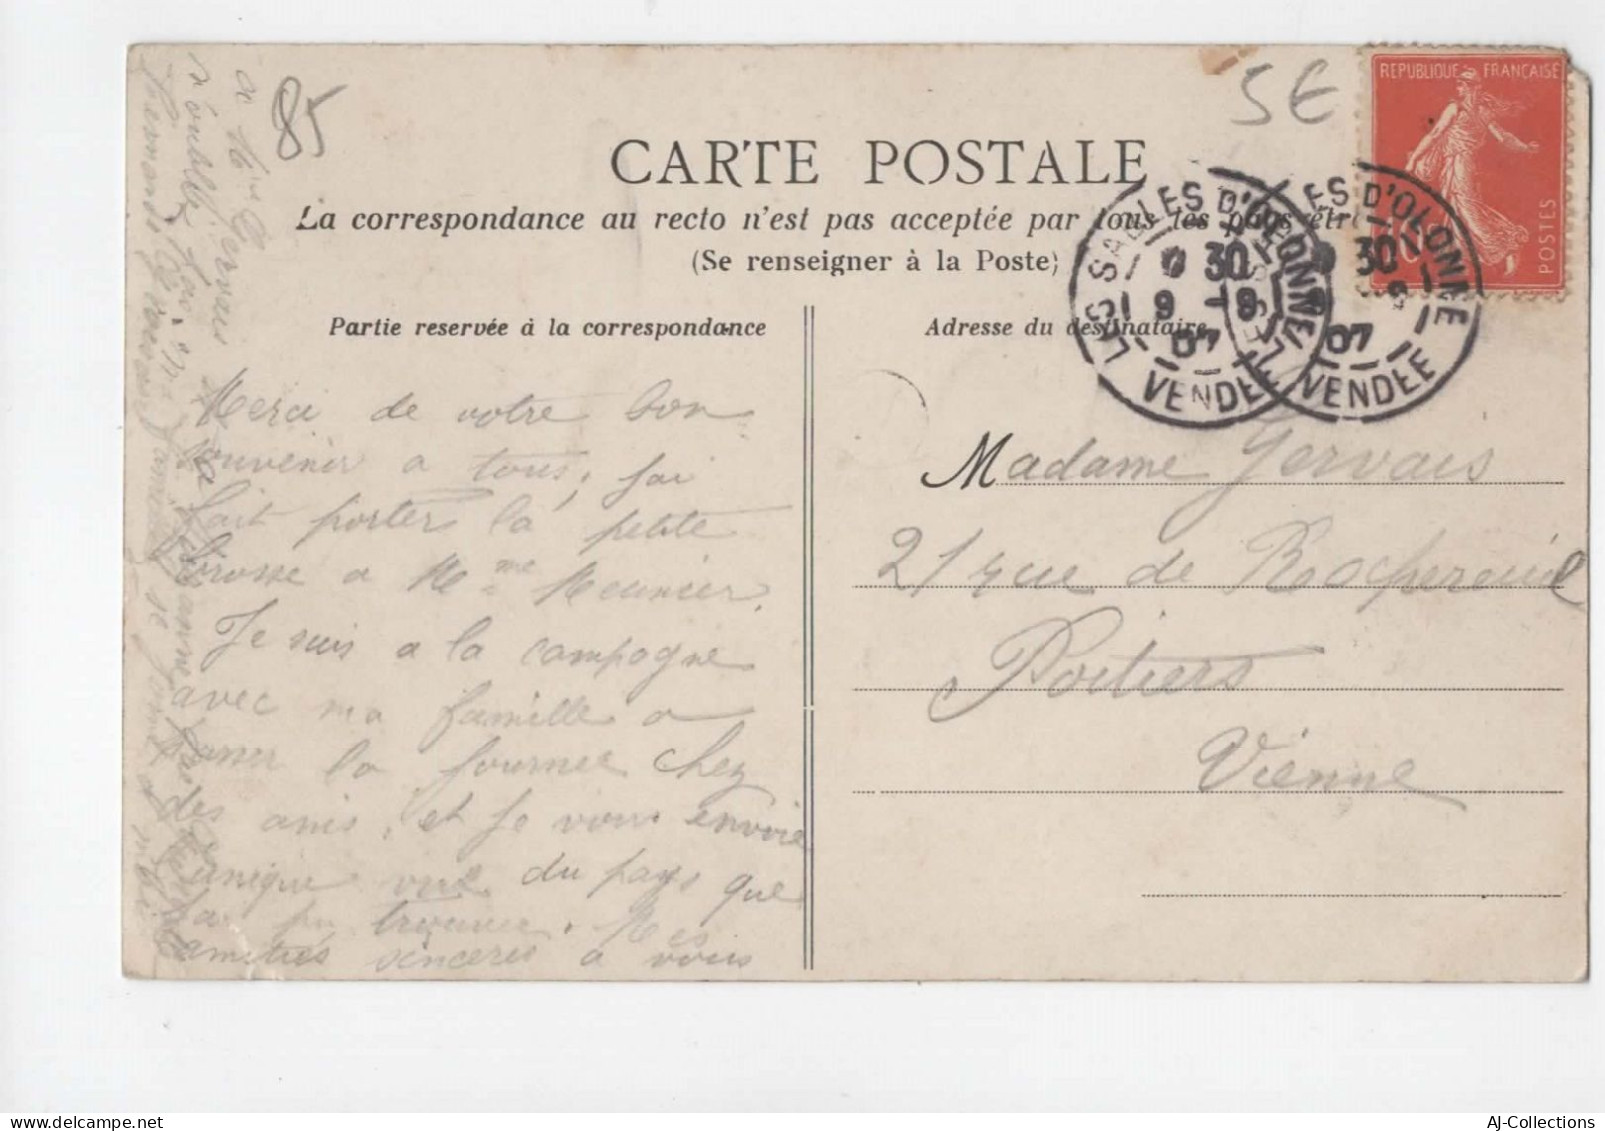 85
5€
REPUBLIQUE FRANÇAISE
POSTES
CARTE POSTALE
La correspondance au recto n'est pas acceptée par tous les pays étr
(Se renseigner à la Poste)
LES SABLES D'OLONNE
30
9 -8
07
VENDEE
LES SABLES D'OLONNE
30
07
VENDEE
Partie reservée à la correspondance
Adresse du destinataire
Merci de votre bon
souvenir a tous, j'ai
fait porter la petite
brosse a Mme Meunier.
Je suis a la campagne
avec ma famille a
passer la journee chez
des amis, et je vous envoie
l'unique vue du pays que
j'ai pu trouver. Mes
amities sinceres a vous
a Mme Gervais
n'oubliez pas
Madame Gervais
21 rue de Rochereuil
Poitiers
Vienne
AJ-Collections